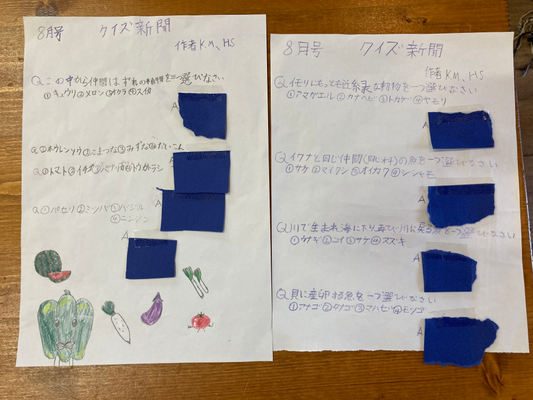 8月号 クイズ新聞
作者K.M、HS
Qこの中から仲間はずれの植物を一つ選びなさい
①キュウリ②メロン③オクラ④スイカ
A
Q①ホウレンソウ②こまつな③みずな④だいこん
A
Q①トマト②
A
Q①パセリ②ミツバ③バジル
④ニンジン
A
8月号 クイズ新聞
作者K.M、HS
Qイモリにもっとも近縁な動物を一つ選びなさい
①アマガエル②カナヘビ③トカゲ④ヤモリ
A
Qイワナと同じ仲間の魚を一つ選びなさい
①サケ②マイワシ③オイカワ④シシャモ
A
Q川で生まれ海に下り、再び川に戻る魚を一つ選びなさい
①ウナギ②コイ③サケ④スズキ
A
Q貝に産卵する魚を一つ選びなさい
①アナゴ②タナゴ③マハゼ④モツゴ
A